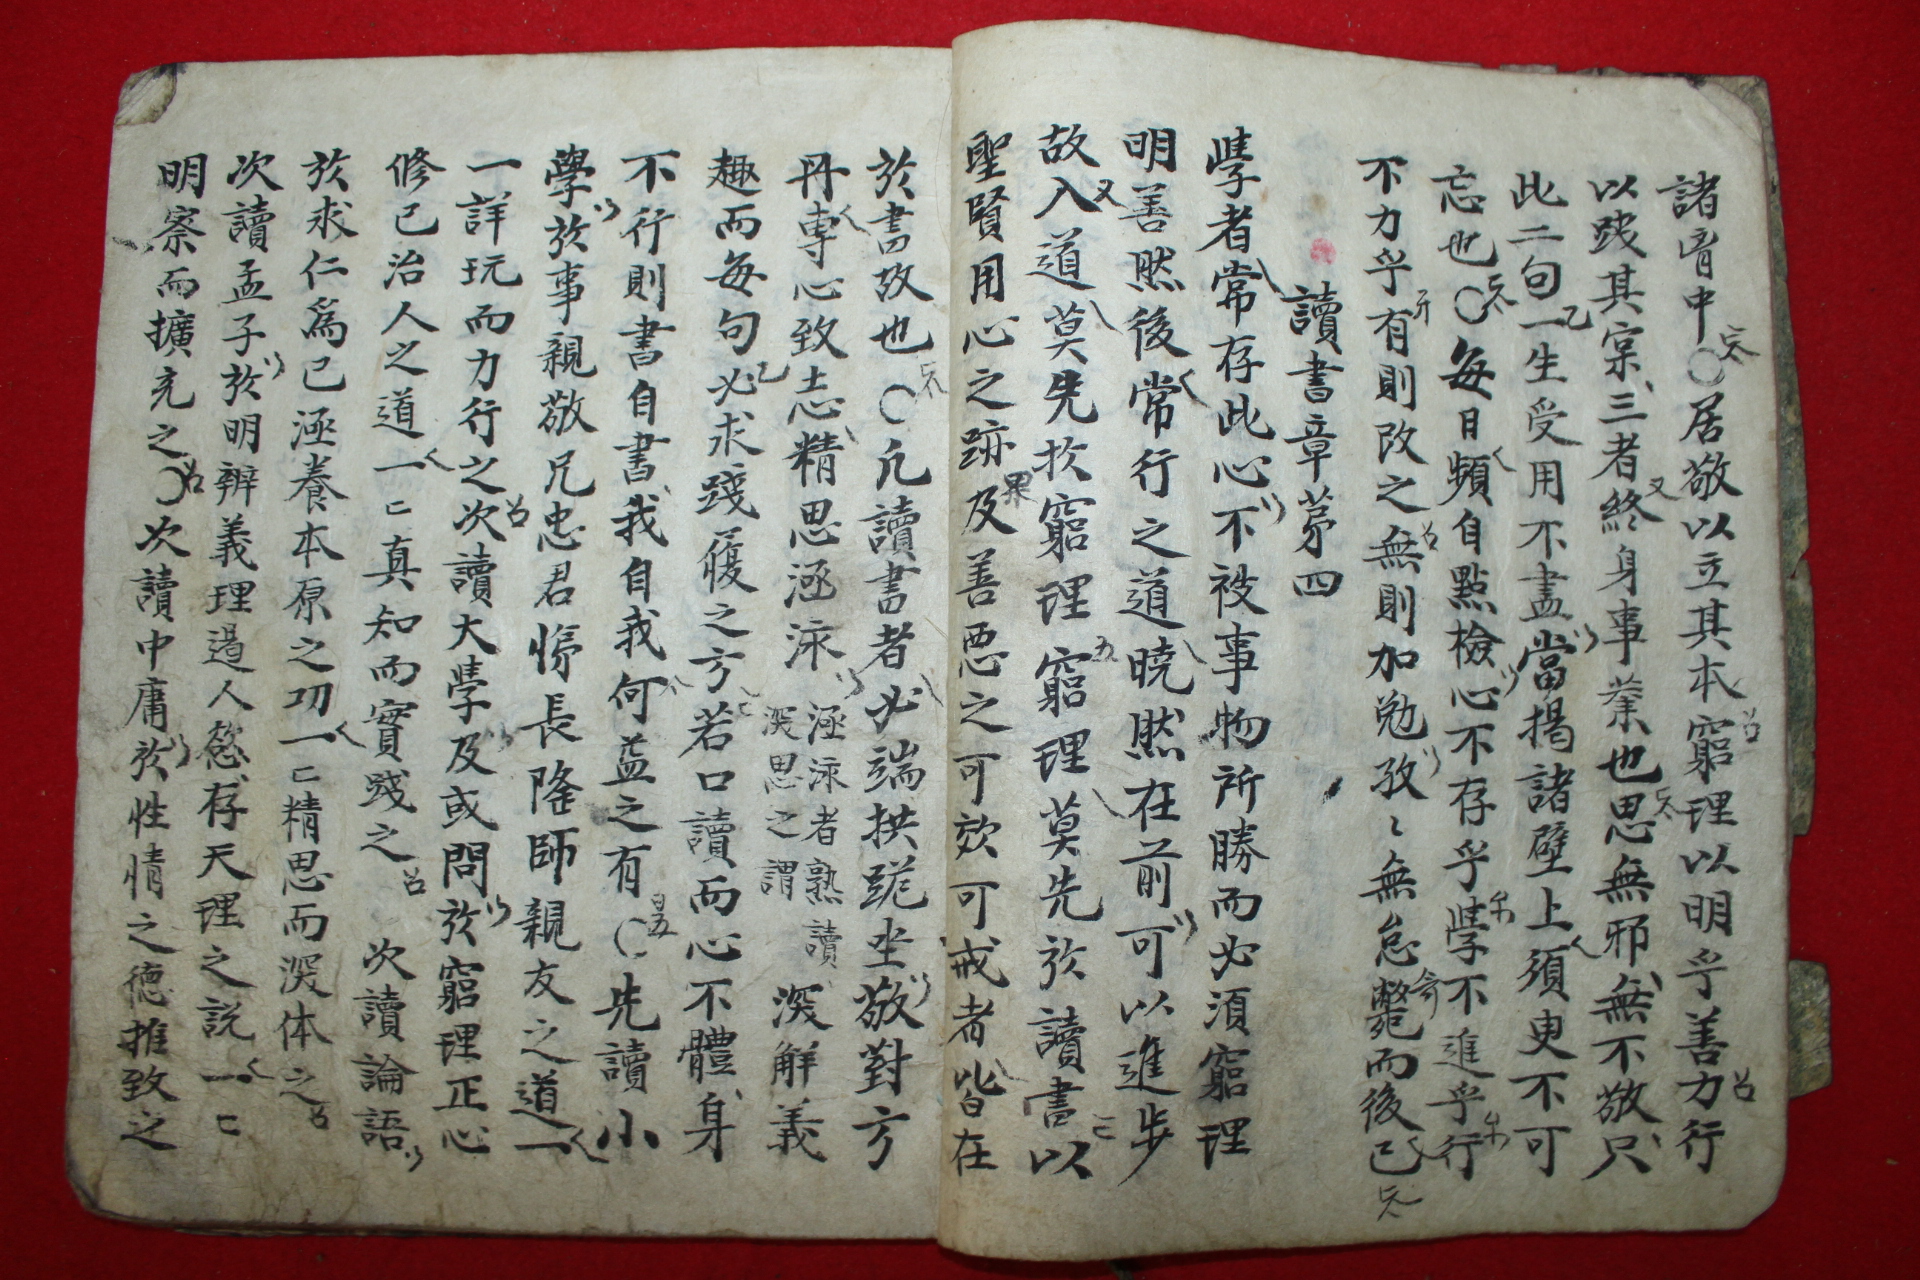 諸胷中○居敬以立其本窮理以明乎善力行
以践其宲三者終身事業也思無邪無不敬只
此二句一生受用不盡當揭諸壁上須臾不可
忘也○每日頻自點檢心不存乎學不進乎行
不力乎有則改之無則加勉孜〻無怠斃而後已
讀書章苐四
學者常存此心不被事物所勝而必須窮理
明善然後常行之道曉然在前可以進步
故入道莫先扵窮理窮理莫先扵讀書以
聖賢用心之跡及善悪之可效可戒者皆在
扵書故也○凢讀書者必端拱跪坐敬對方
冊專心致志精思涵泳涵泳者熟讀深思之謂深解義
趣而每句必求踐履之方若口讀而心不體身
不行則書自書我自我何益之有○先讀小
學扵事親敬兄忠君悌長隆師親友之道一
一詳玩而力行之次讀大學及或問扵窮理正心
修己治人之道一ᄃ真知而實踐之次讀論語
扵求仁爲己涵養本原之功一ᄃ精思而深体之
次讀孟子扵明辨義理遏人慾存天理之説一ᄃ
明察而擴充之○次讀中庸扵性情之德推致之